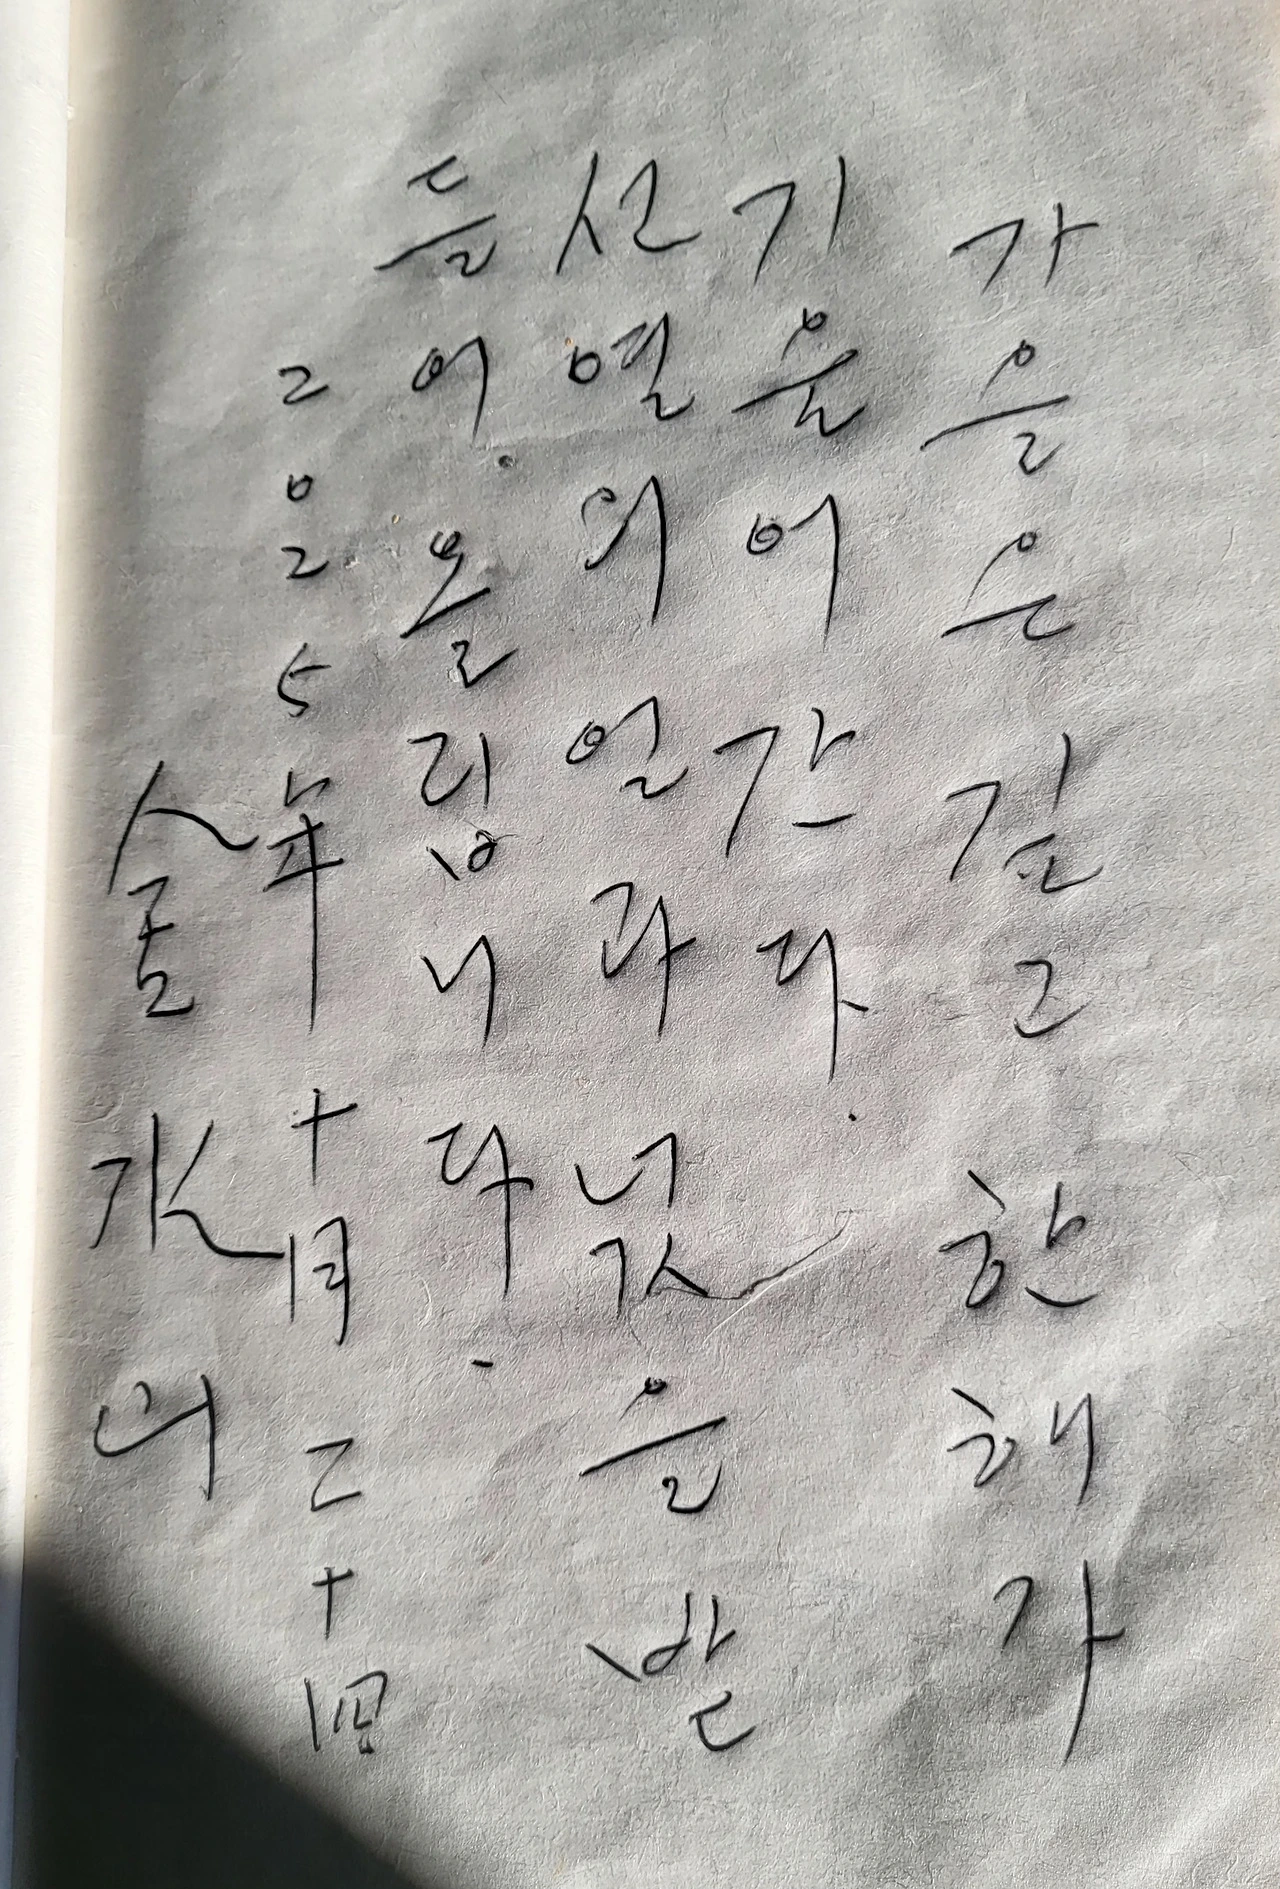 가을은 깊고 한 해가
기울어 간다.
선열의 얼과 넋을 받
들어 올립니다.
2025年 十月 二十四